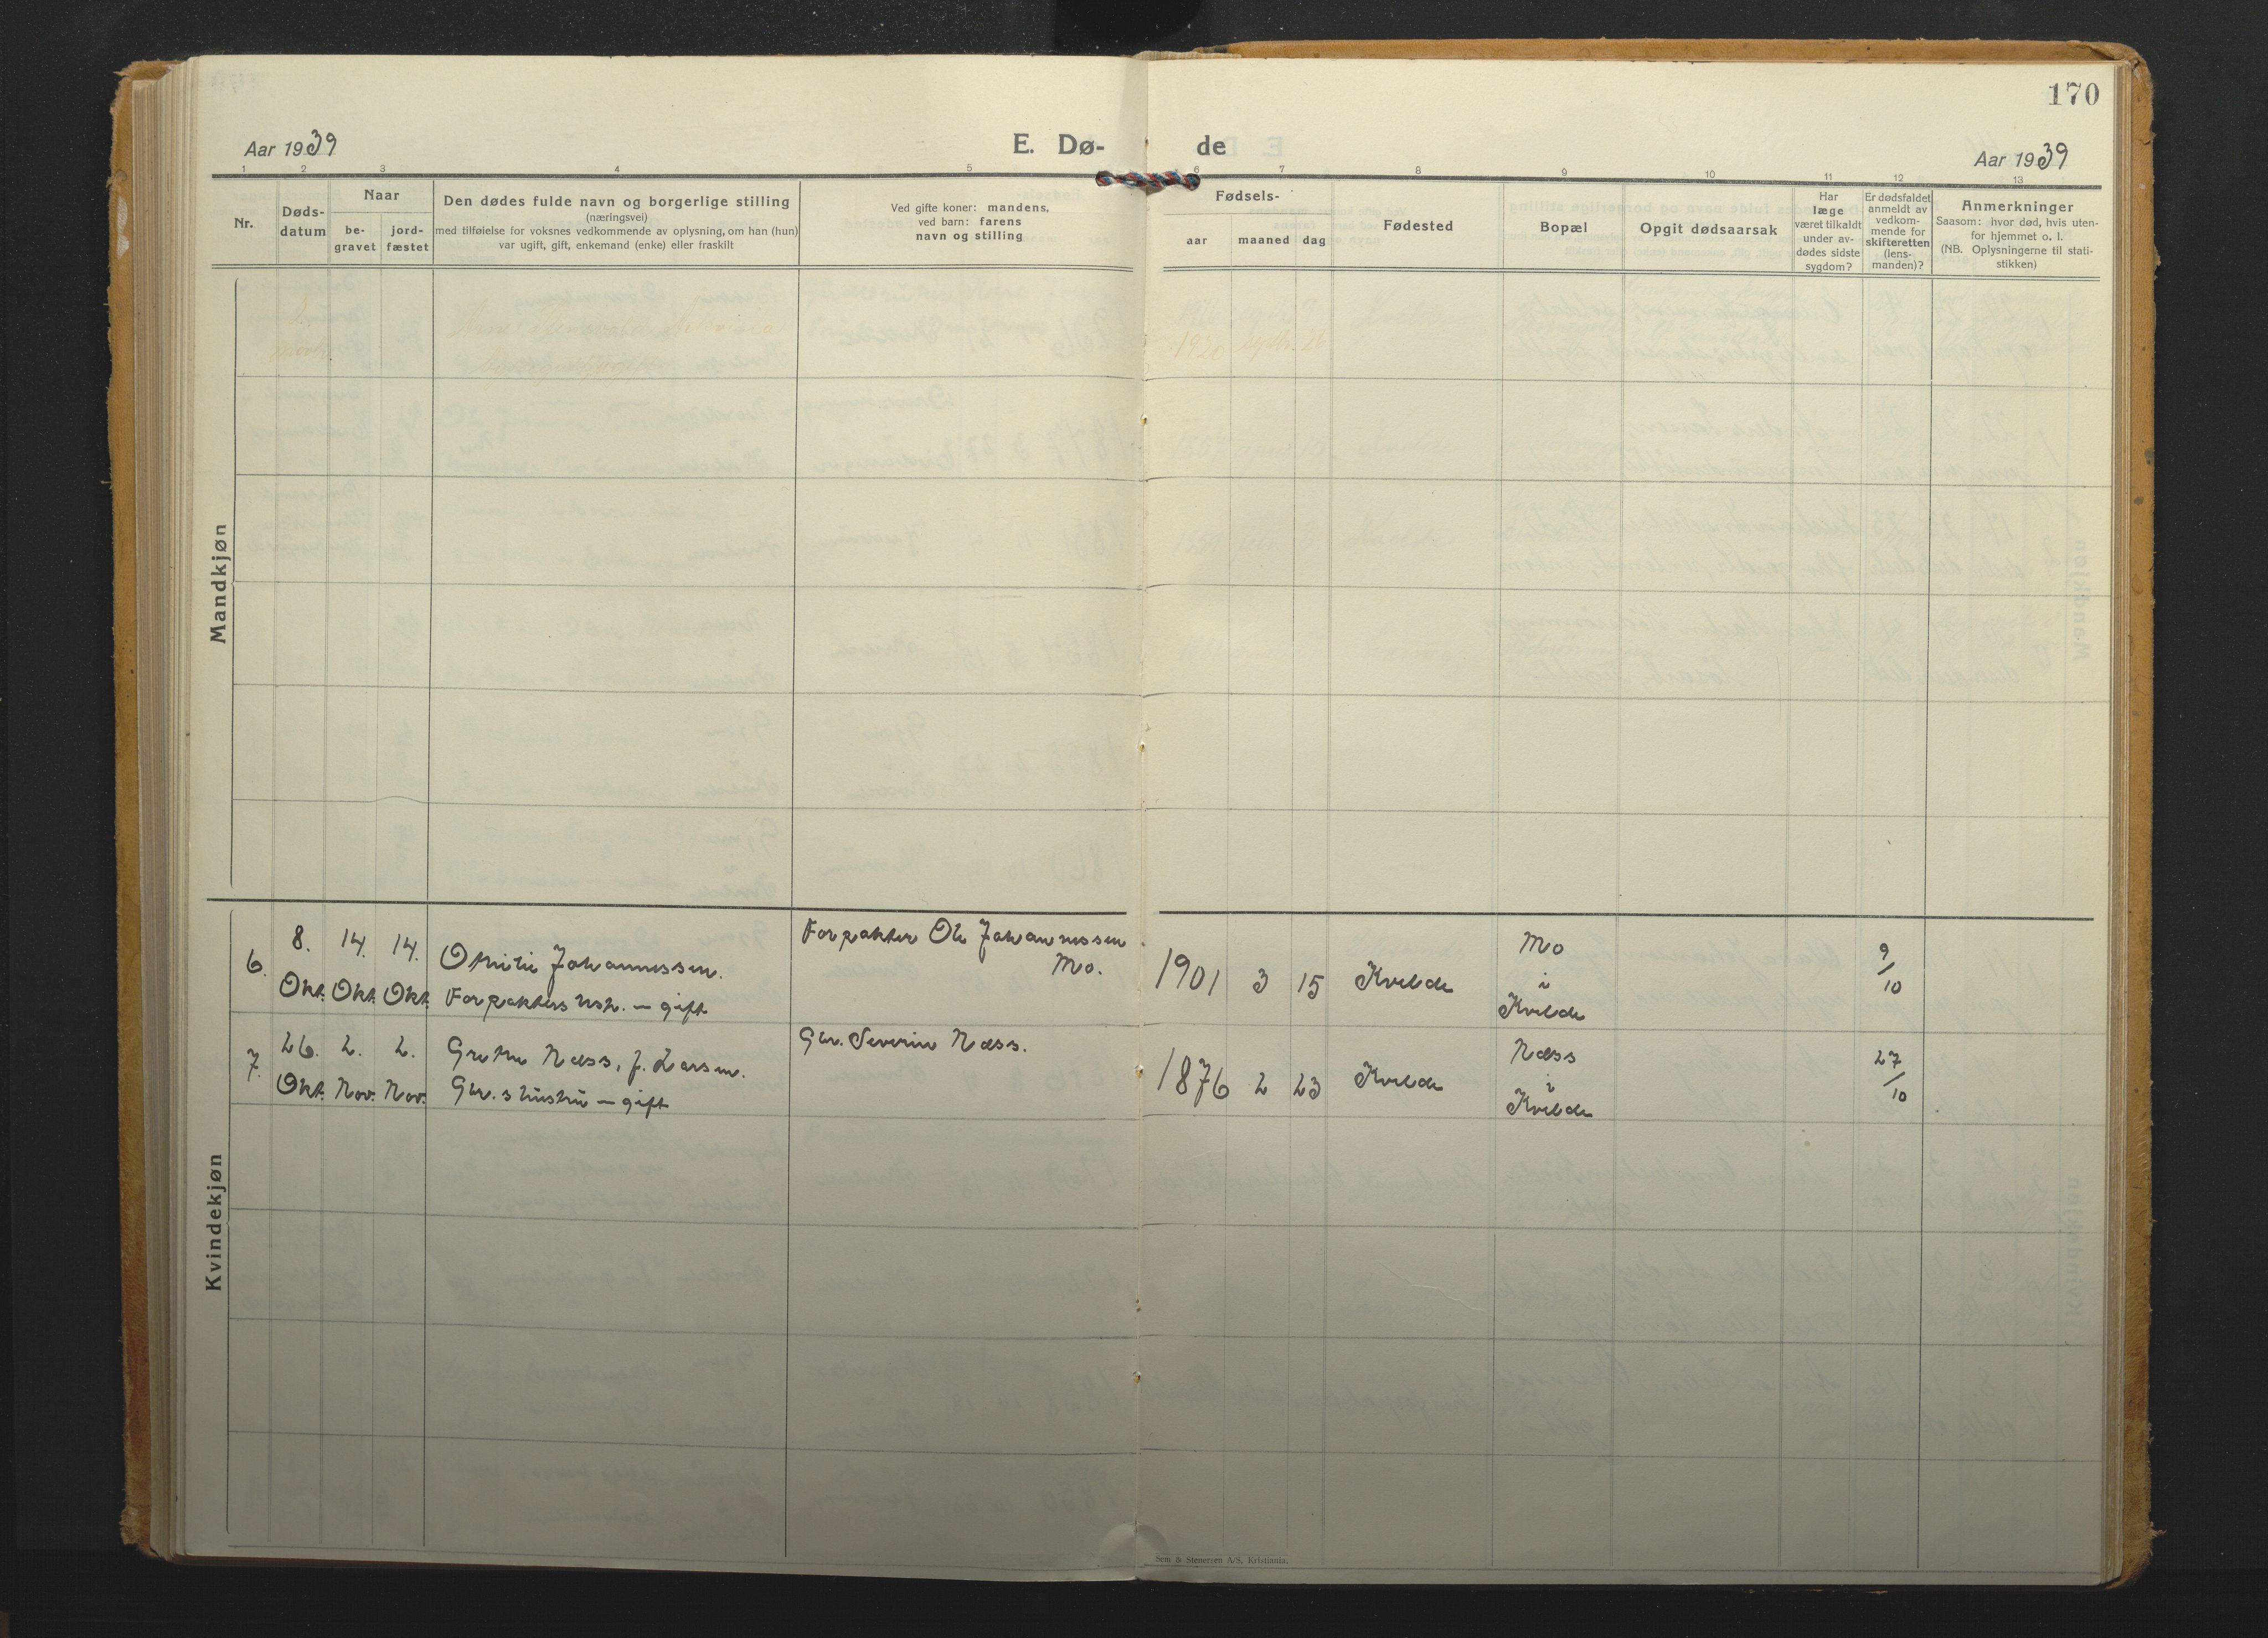 170
Aar 1939
E. Dø-
de
Aar 1939
1 2 3 4 5 6 7 8 9 10 11 12 13
Nr.
Døds-
datum
Naar
be-
gravet
jord-
fæstet
Den dødes fulde navn og borgerlige stilling
(næringsvei)
med tilføielse for voksnes vedkommende av oplysning, om han (hun)
var ugift, gift, enkemand (enke) eller fraskilt
Ved gifte koner: mandens,
ved barn: farens
navn og stilling
Fødsels-
aar maaned dag
Fødested
Bopæl
Opgit dødsaarsak
Har
læge
været tilkaldt
under av-
dødes sidste
sygdom?
Er dødsfaldet
anmeldt av
vedkom-
mende for
skifteretten
(lens-
manden)?
Anmerkninger
Saasom: hvor død, hvis uten-
for hjemmet o. l.
(NB. Oplysningerne til stati-
stikken)
Mandkjøn
Kvindekjøn
6. 8. Okt. 14. Okt. 14. Okt.
Johannessen.
Forpakters - gift
Forpakter Ole Johannessen
Mo.
1901 3 15 Kvelde
Mo
i
Kvelde
9/10
7. 26. Okt. 2. Nov. 2. Nov.
Grethe Næss, f. Larsen.
Gbr.s hustru - gift
Gbr. Severin Næss.
1876 2 23 Kvelde
Næss
i
Kvelde
27/10
Sem & Stenersen A/S, Kristiania.